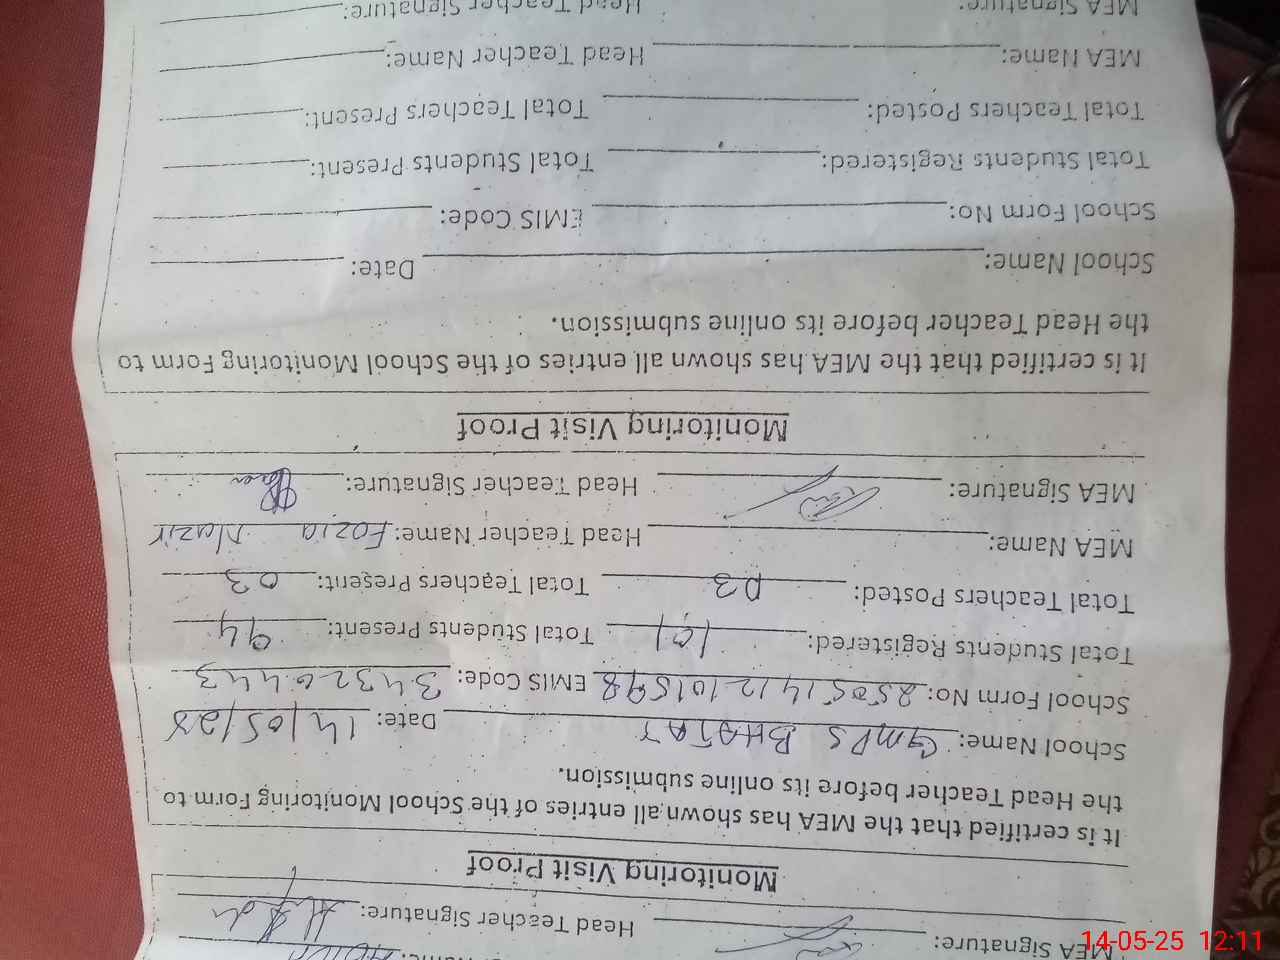 MEA Signature: Head Teacher Signature:
Monitoring Visit Proof
It is certified that the MEA has shown all entries of the School Monitoring Form to
the Head Teacher before its online submission.
School Name: GMPS BHATAY Date: 14/05/25
School Form No: EMIS Code: 34320443
Total Students Registered: 101 Total Students Present: 94
Total Teachers Posted: 03 Total Teachers Present: 03
MEA Name: Head Teacher Name: Fozia Nazir
MEA Signature: Head Teacher Signature:
Monitoring Visit Proof
It is certified that the MEA has shown all entries of the School Monitoring Form to
the Head Teacher before its online submission.
School Name: Date:
School Form No: EMIS Code:
Total Students Registered: Total Students Present:
Total Teachers Posted: Total Teachers Present:
MEA Name: Head Teacher Name:
MEA Signature: Head Teacher Signature:
14-05-25 12:11